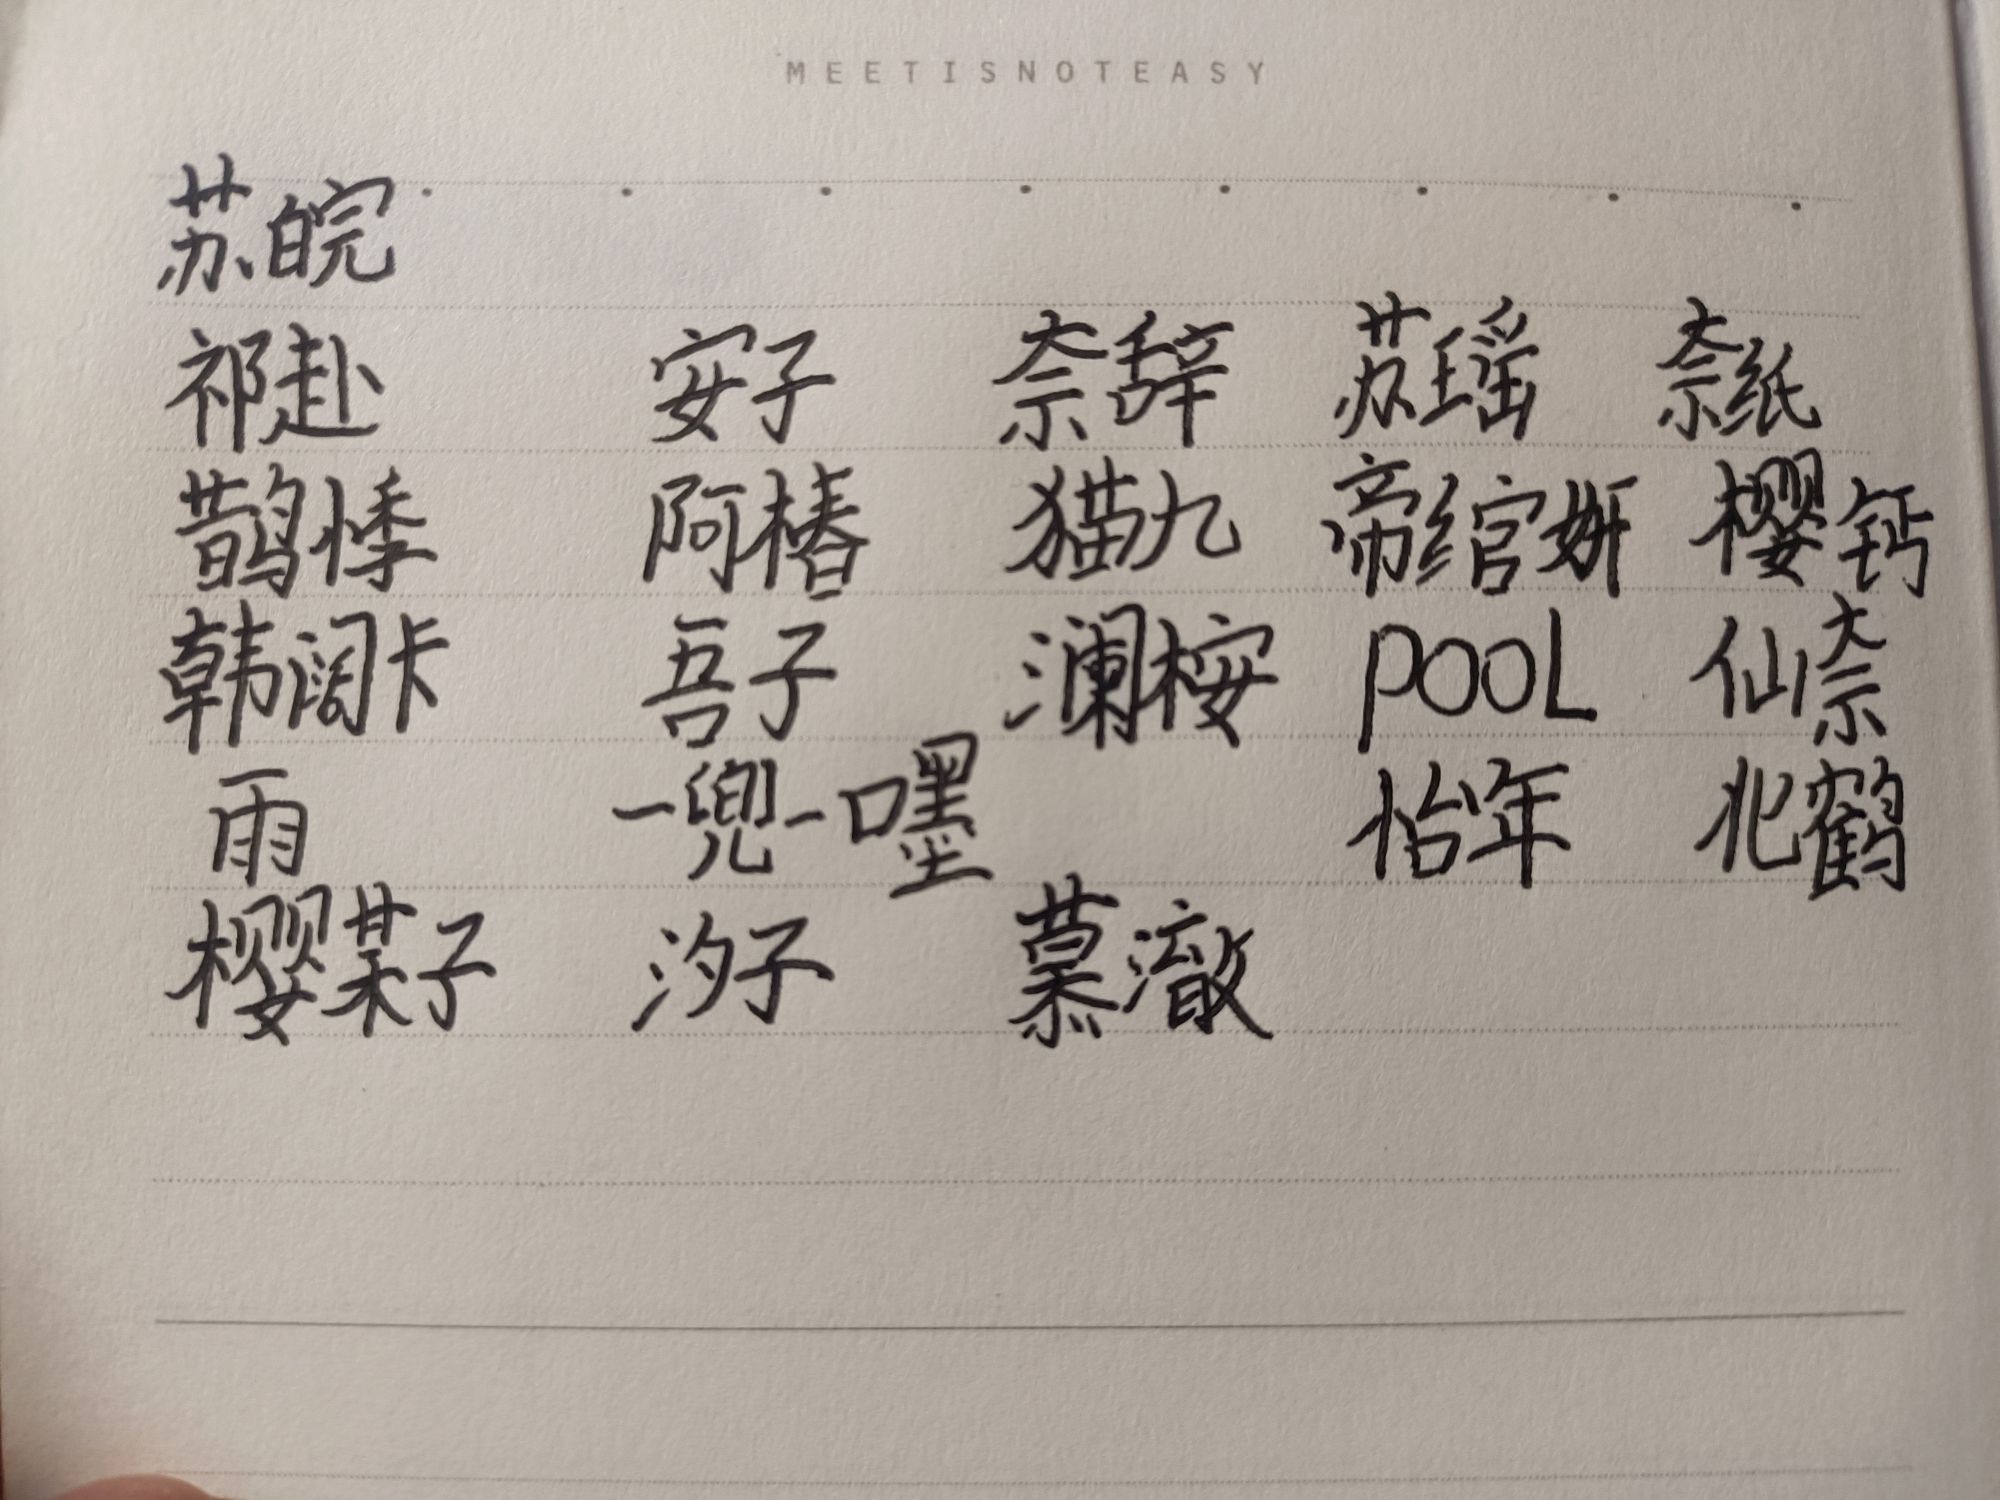 MEETISNOTEASY
苏皖
祁赴 安子 奈辞 苏瑶 奈纸
鹊悸 阿椿 猫九 帝绾妍 樱钙
韩阔卡 吾子 澜桉 POOL 仙奈
雨 一兜一口嘿 怡年 北鹤
樱某子 汐子 慕澈